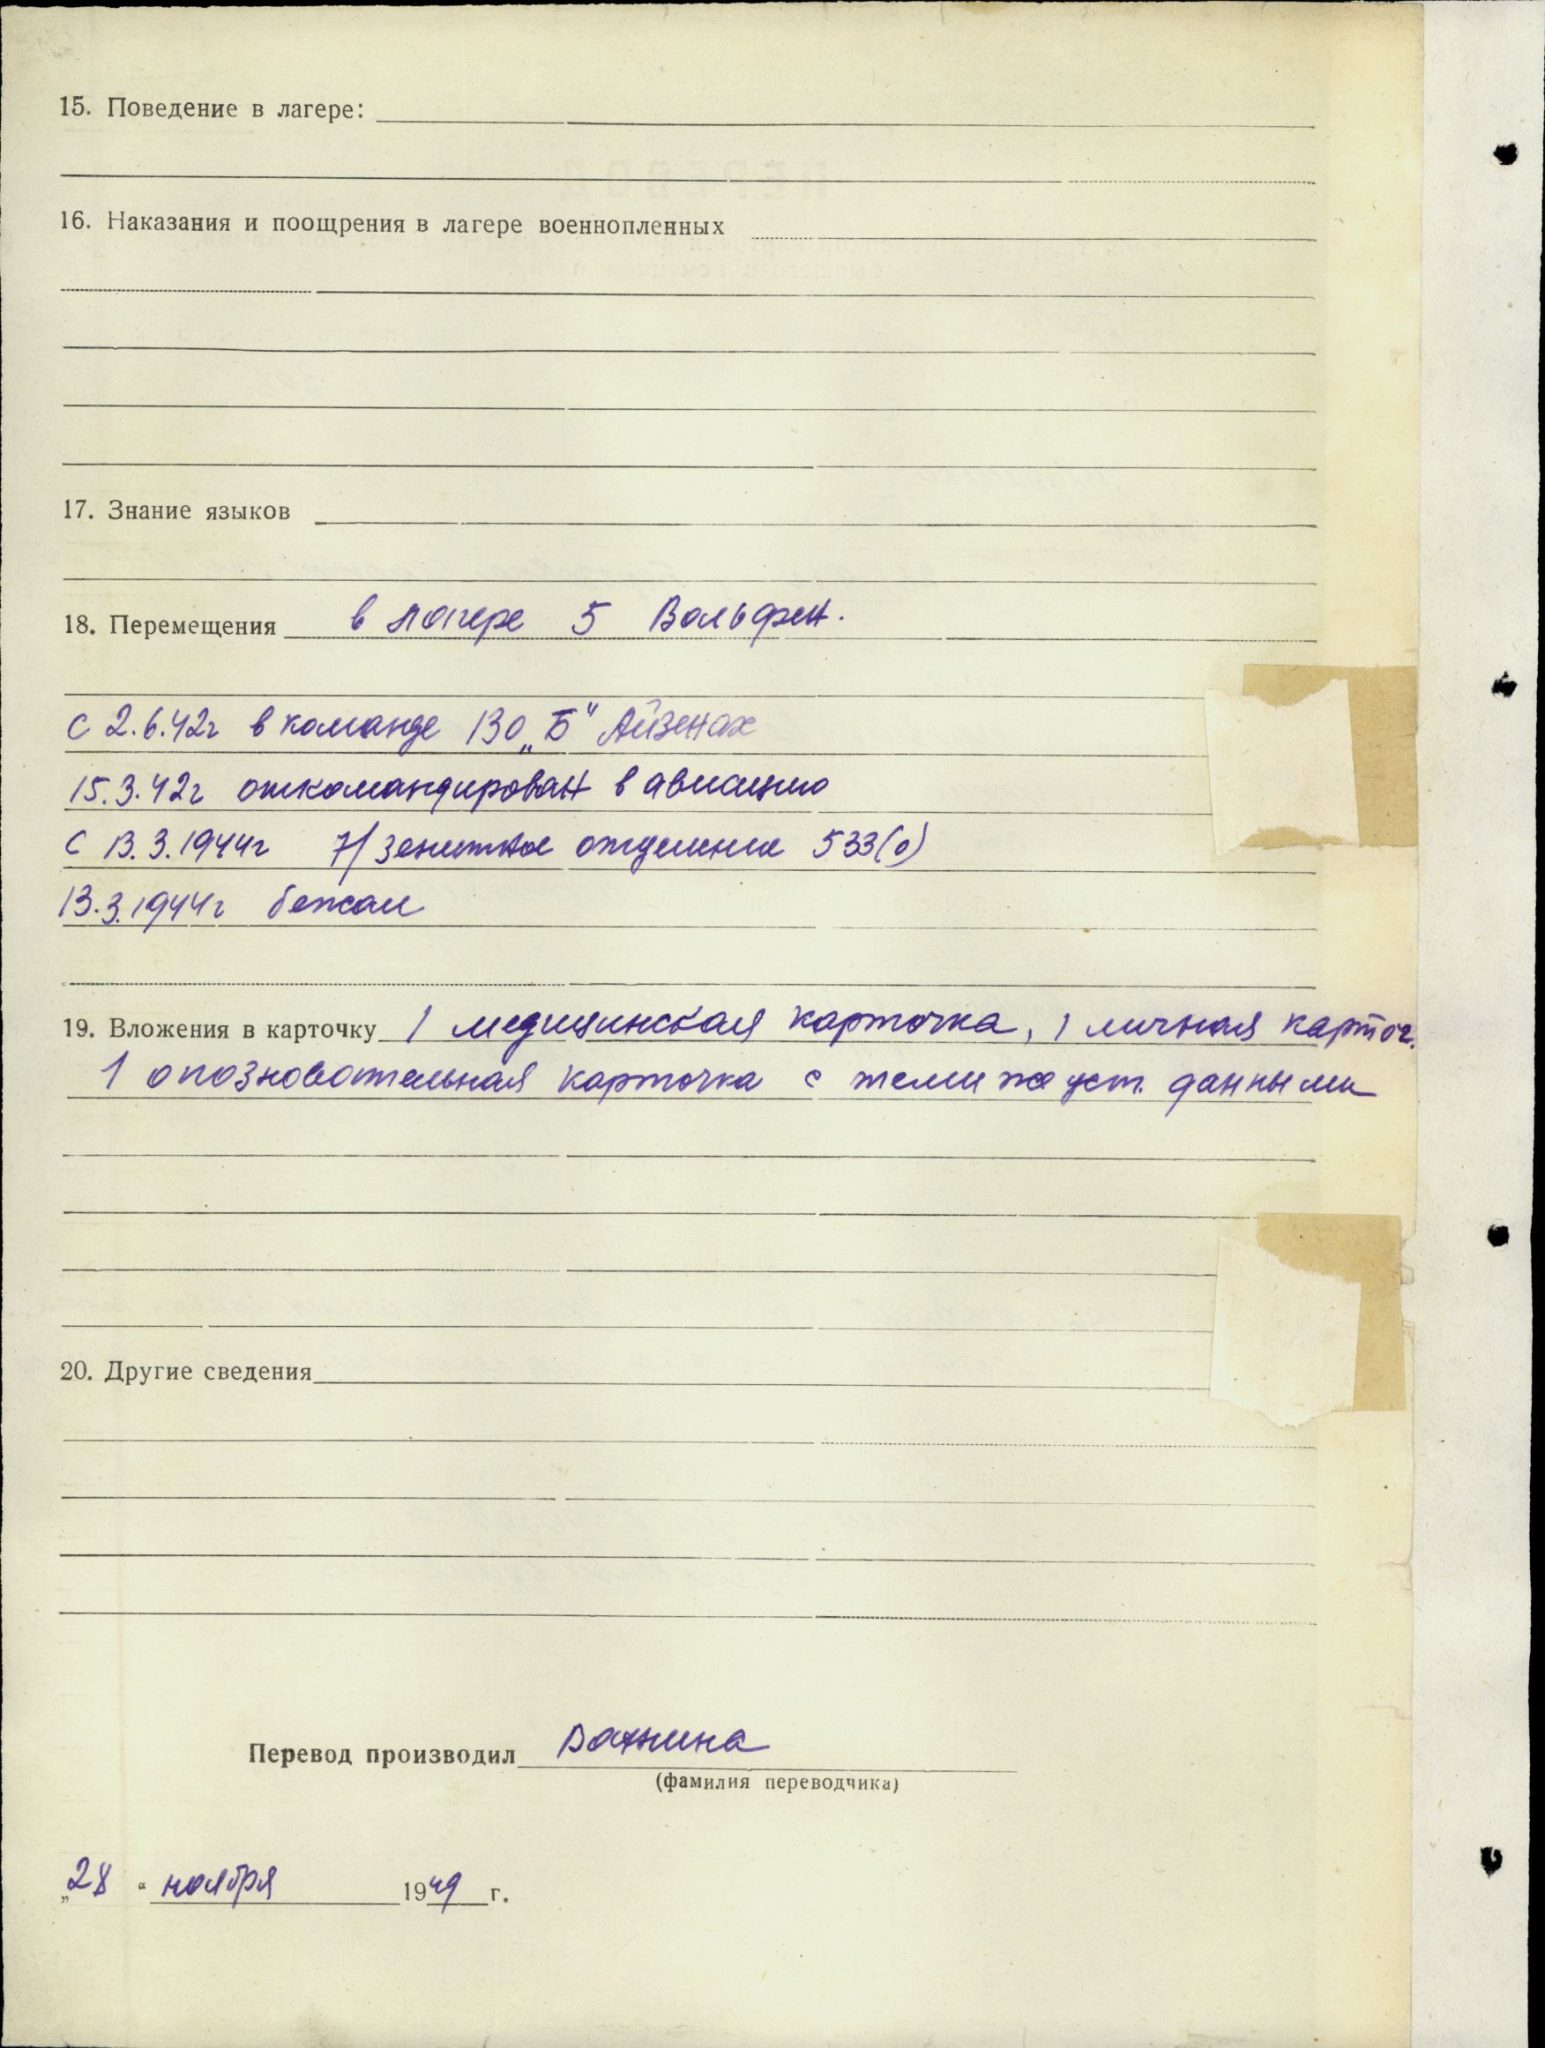 15. Поведение в лагере:
16. Наказания и поощрения в лагере военнопленных
17. Знание языков
18. Перемещения в лагере 5 Вольфен.
с 2.6.42г в команде 130 „Б“ Айзенах
15.3.42г откомандирован в авиацию
с 13.3.1944г 7/зенитное отделение 533(о)
13.3.1944г бежал
19. Вложения в карточку 1 медицинская карточка, 1 личная карточ.
1 опозновательная карточка с теми же уст. данными
20. Другие сведения
Перевод производил Важнина
(фамилия переводчика)
„28“ ноября 1949 г.